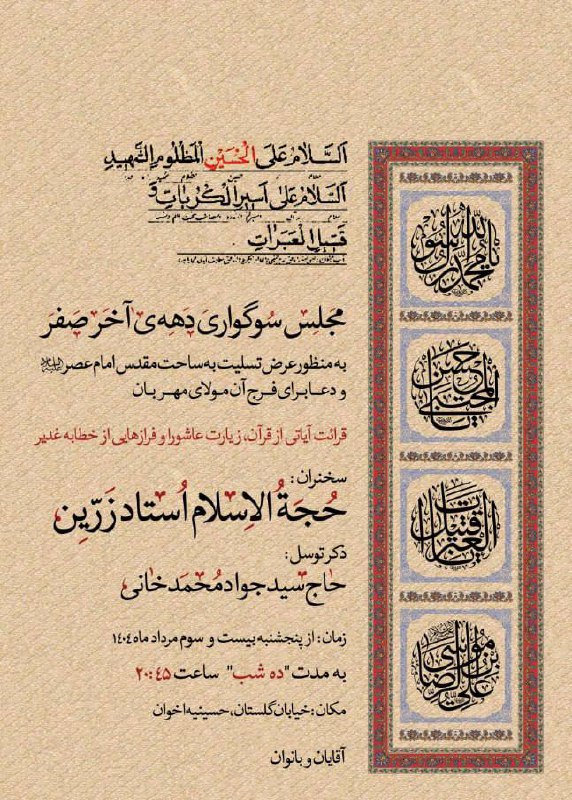 اَلسَّلامُ عَلَى الْحُسَيْنِ الْمَظْلُومِ الشَّهِيدِ
اَلسَّلامُ عَلى اَسِيرِ الْكُرُباتِ وَ
قَتِيلِ الْعَبَراتِ
مجلس سوگواری دهه‌ی آخر صفر
به منظور عرض تسلیت به ساحت مقدس امام عصر
و دعا برای فرج آن مولای مهربان
قرائت آیاتی از قرآن، زیارت عاشورا و فرازهایی از خطابه غدیر
سخنران:
حُجَةُ الاِسلام اُستاد زَرّین
ذکر توسل:
حاج سید جواد مُحمَد خانی
زمان: از پنجشنبه بیست و سوم مرداد ماه ۱۴۰۴
به مدت "ده شب" ساعت ۲۰:۴۵
مکان: خیابان گلستان، حسینیه اخوان
آقایان و بانوان
یا محمد رسول الله
یا حسن المجتبی
یا قتیل العبرات
علی بن موسی الرضا